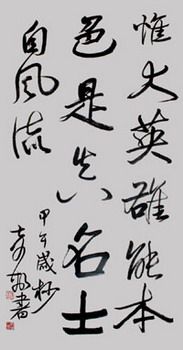 惟大英雄能本
色是真名士
自风流
甲午岁杪
书